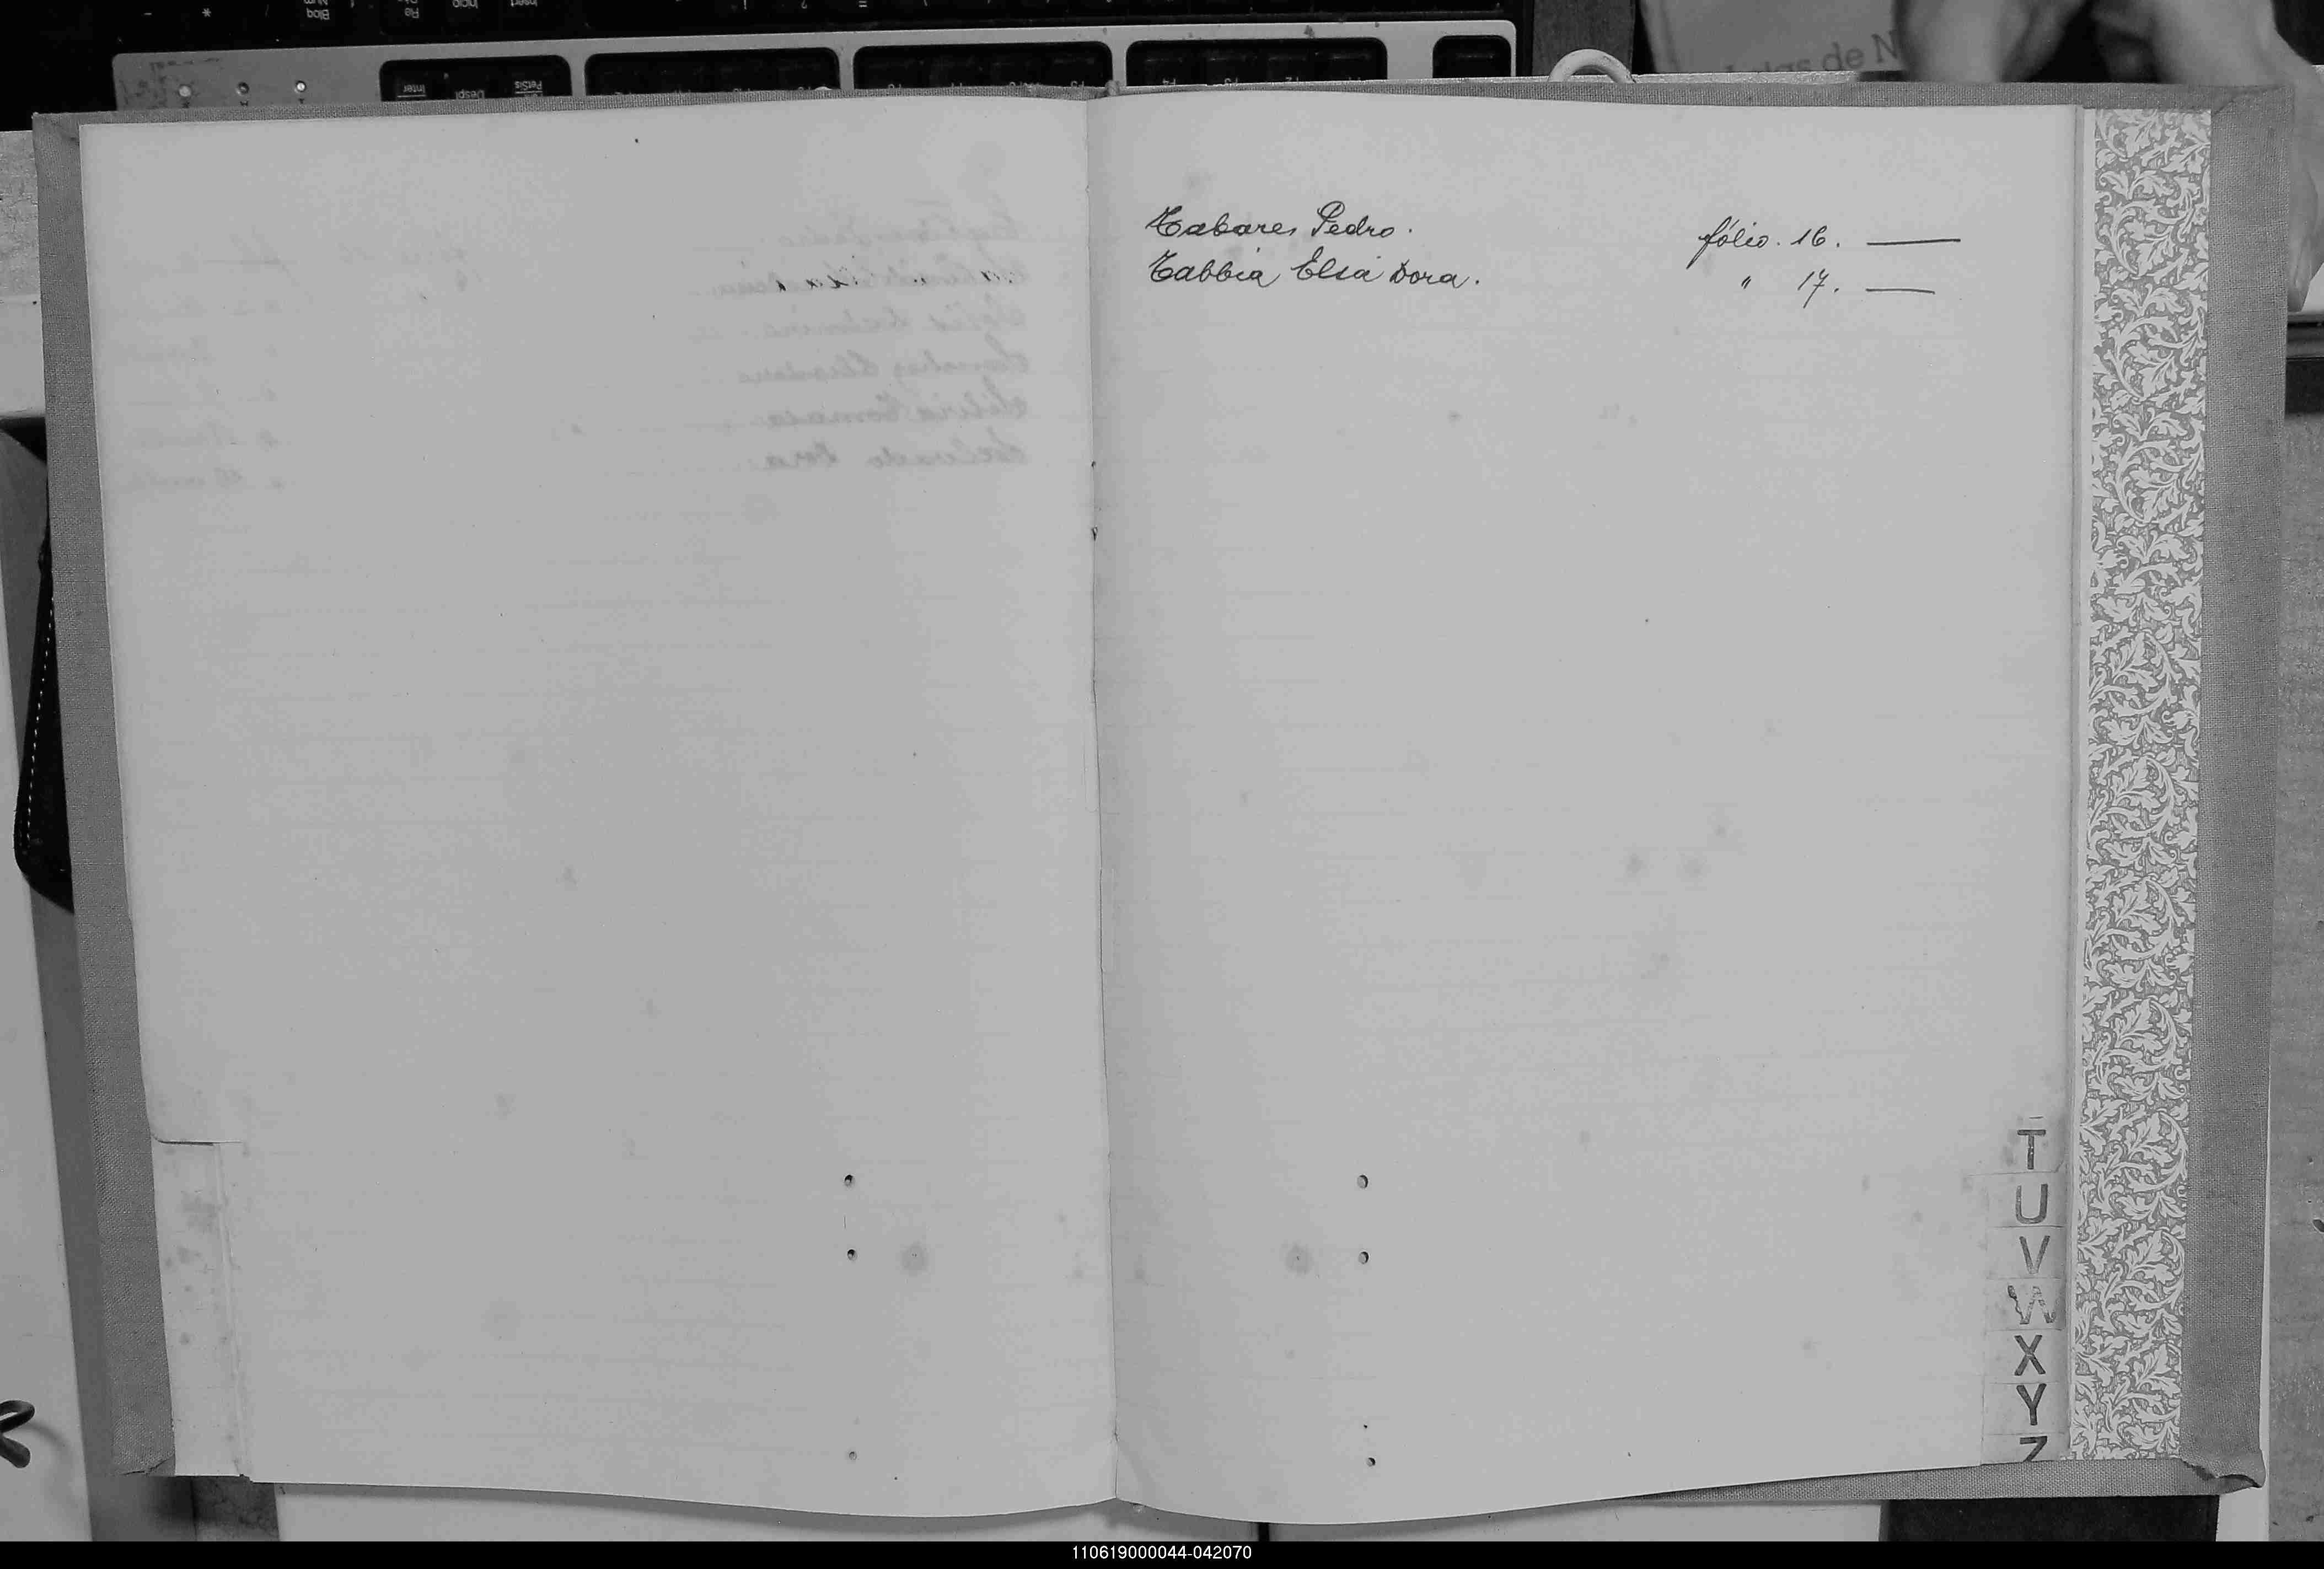 Tabares Pedro. fólio. 16.
Tabbia Elsa Dora. " 17.
T
U
V
W
X
Y
Z
110619000044-042070